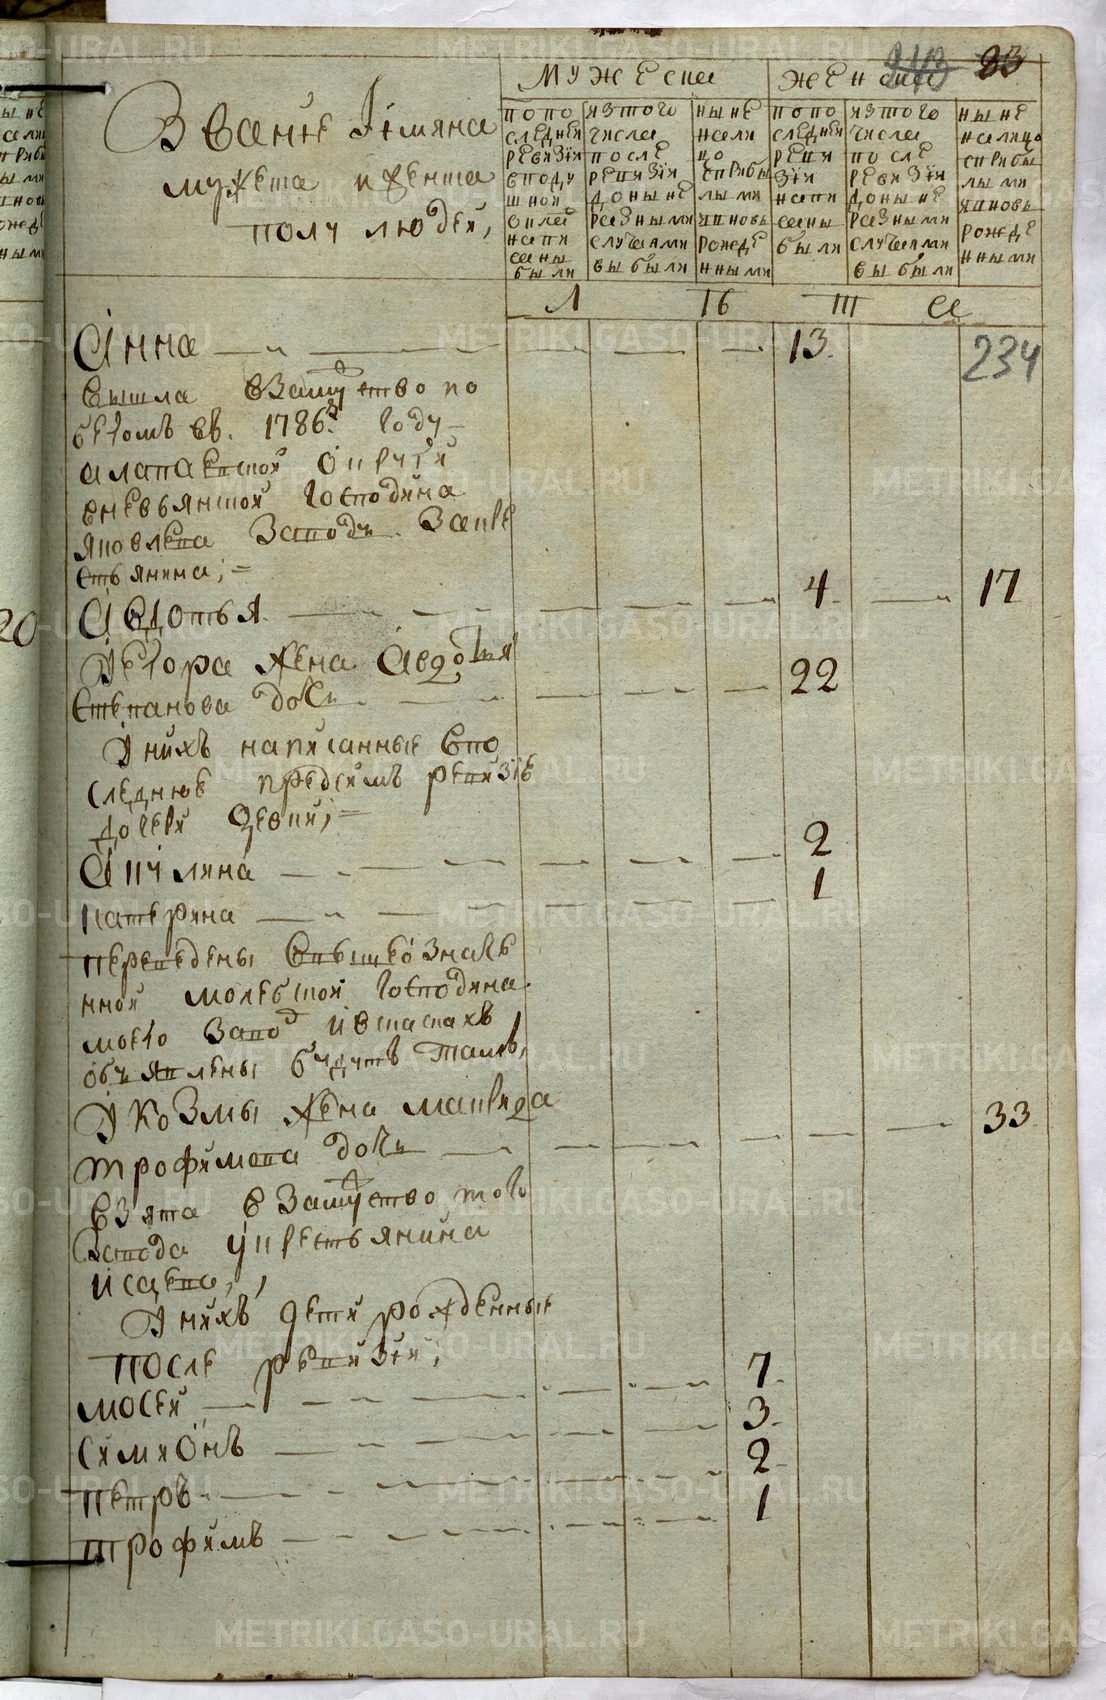 243 83
мужеска
женска
Звание і имяна
мужеска и женска
полу людей,
по по
следней
ревизіи
в поду
шной
окла
напи
саны
были
из того
числа
после
ревизіи
до ныне
разными
случаями
выбыли
ныне
на ли
цо
с прибы
лыми
и вновь
рожде
нными
по по
следней
реви
зіи
напи
саны
были
из того
числа
после
ревизіи
до ныне
разными
случаями
выбыли
ныне
на лицо
с прибы
лыми
и вновь
рожде
нными
Л Т б Ш
Анна 13
234
вышла в замужство по
бегомъ въ 1786м году
алапаевской округи
господина
яковлева заводу за кре
стьянина,
20
Авдотья 4 17
Егора жена Авдотья
Степанова дочь 22
У нихъ написанные в по
следнюе пред симъ ревизіе
дочери девки,
Акулина 2
Катерина 1
переведены в вышеозначе
нной молебской господина
моего завод и в скаскахъ
объявлены будутъ тамъ,
У Козмы жена
трофимова дочь 33
взята в замужство того
завода у крестьянина
Исаева,
У нихъ дети рожденные
после ревизіи,
мосей 7
симионъ 3
петръ 2
трофимъ 1
METRIKI.GASO-URAL.RU